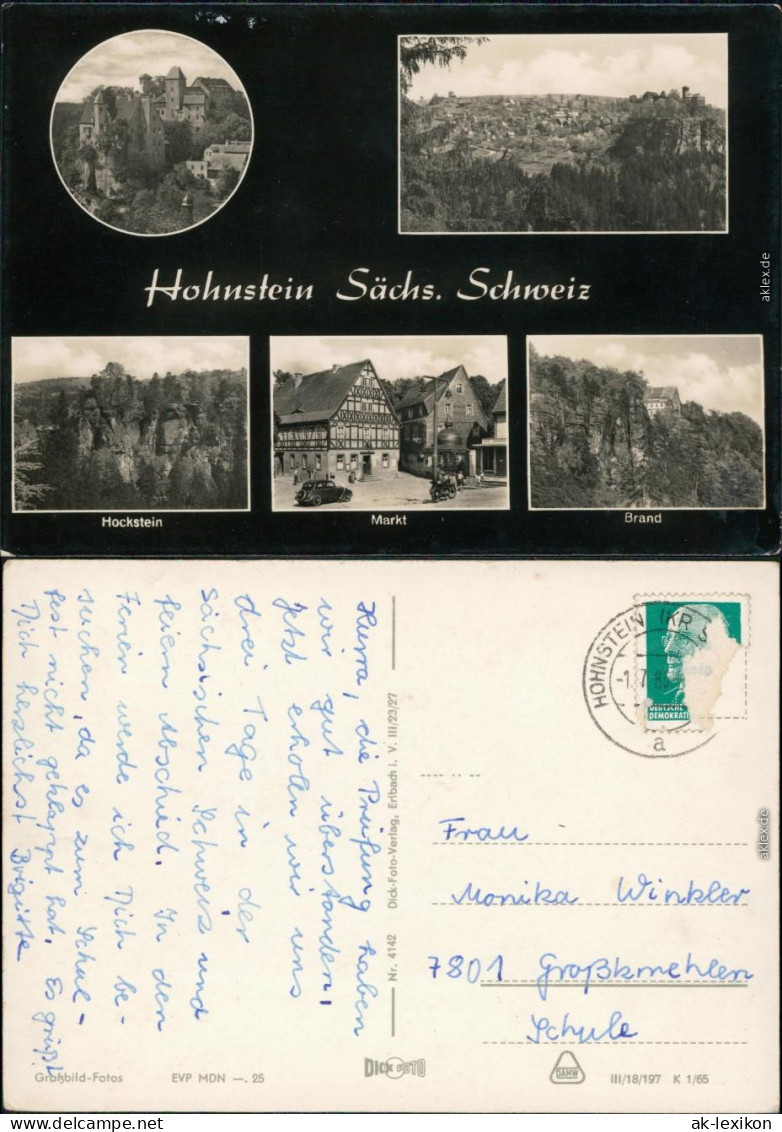 Hohnstein Sächs. Schweiz
Hockstein
Markt
Brand
aklex.de
Hurra, die Prüfung haben
wir gut überstanden,
jetzt erholn wir uns
drei Tage in der
Sächsischen Schweiz und
feiern Abschied. In den
Ferien werde ich Dich be-
suchen, da es zum Schul-
fest nicht geklappt hat. Es grüßt
Dich herzlichst Brigitte
Nr. 4142 Dick-Foto-Verlag, Erlbach i. V. III/23/27
HOHNSTEIN (KR S
a
DEUTSCHE
DEMOKRATI
Frau
Monika Winkler
7801 Großkmehlen
Schule
aklex.de
Großbild-Fotos
EVP MDN —. 25
DICK FOTO
DAMW
III/18/197 K 1/65
ak-lexikon